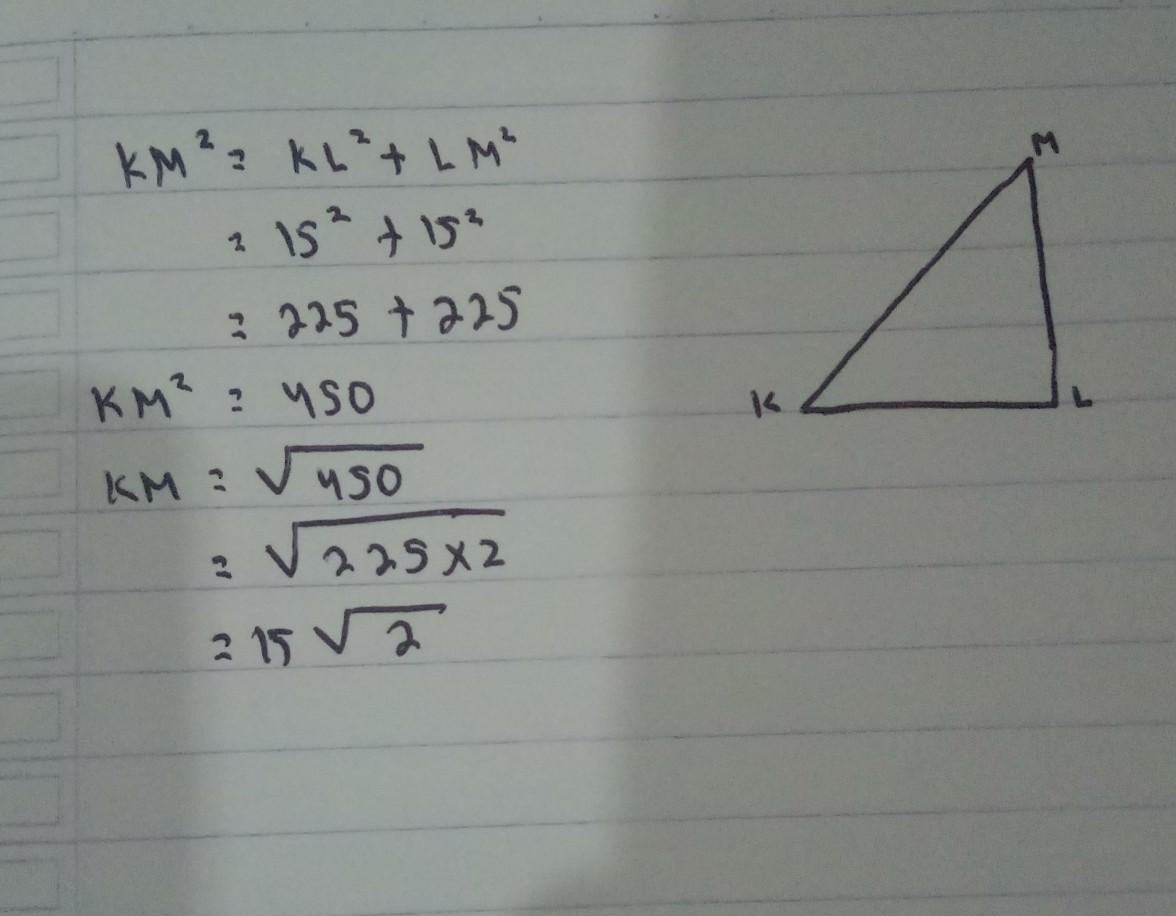 KM² = KL² + LM²
= 15² + 15²
= 225 + 225
KM² = 450
KM = √450
= √225×2
= 15√2
M
K
L